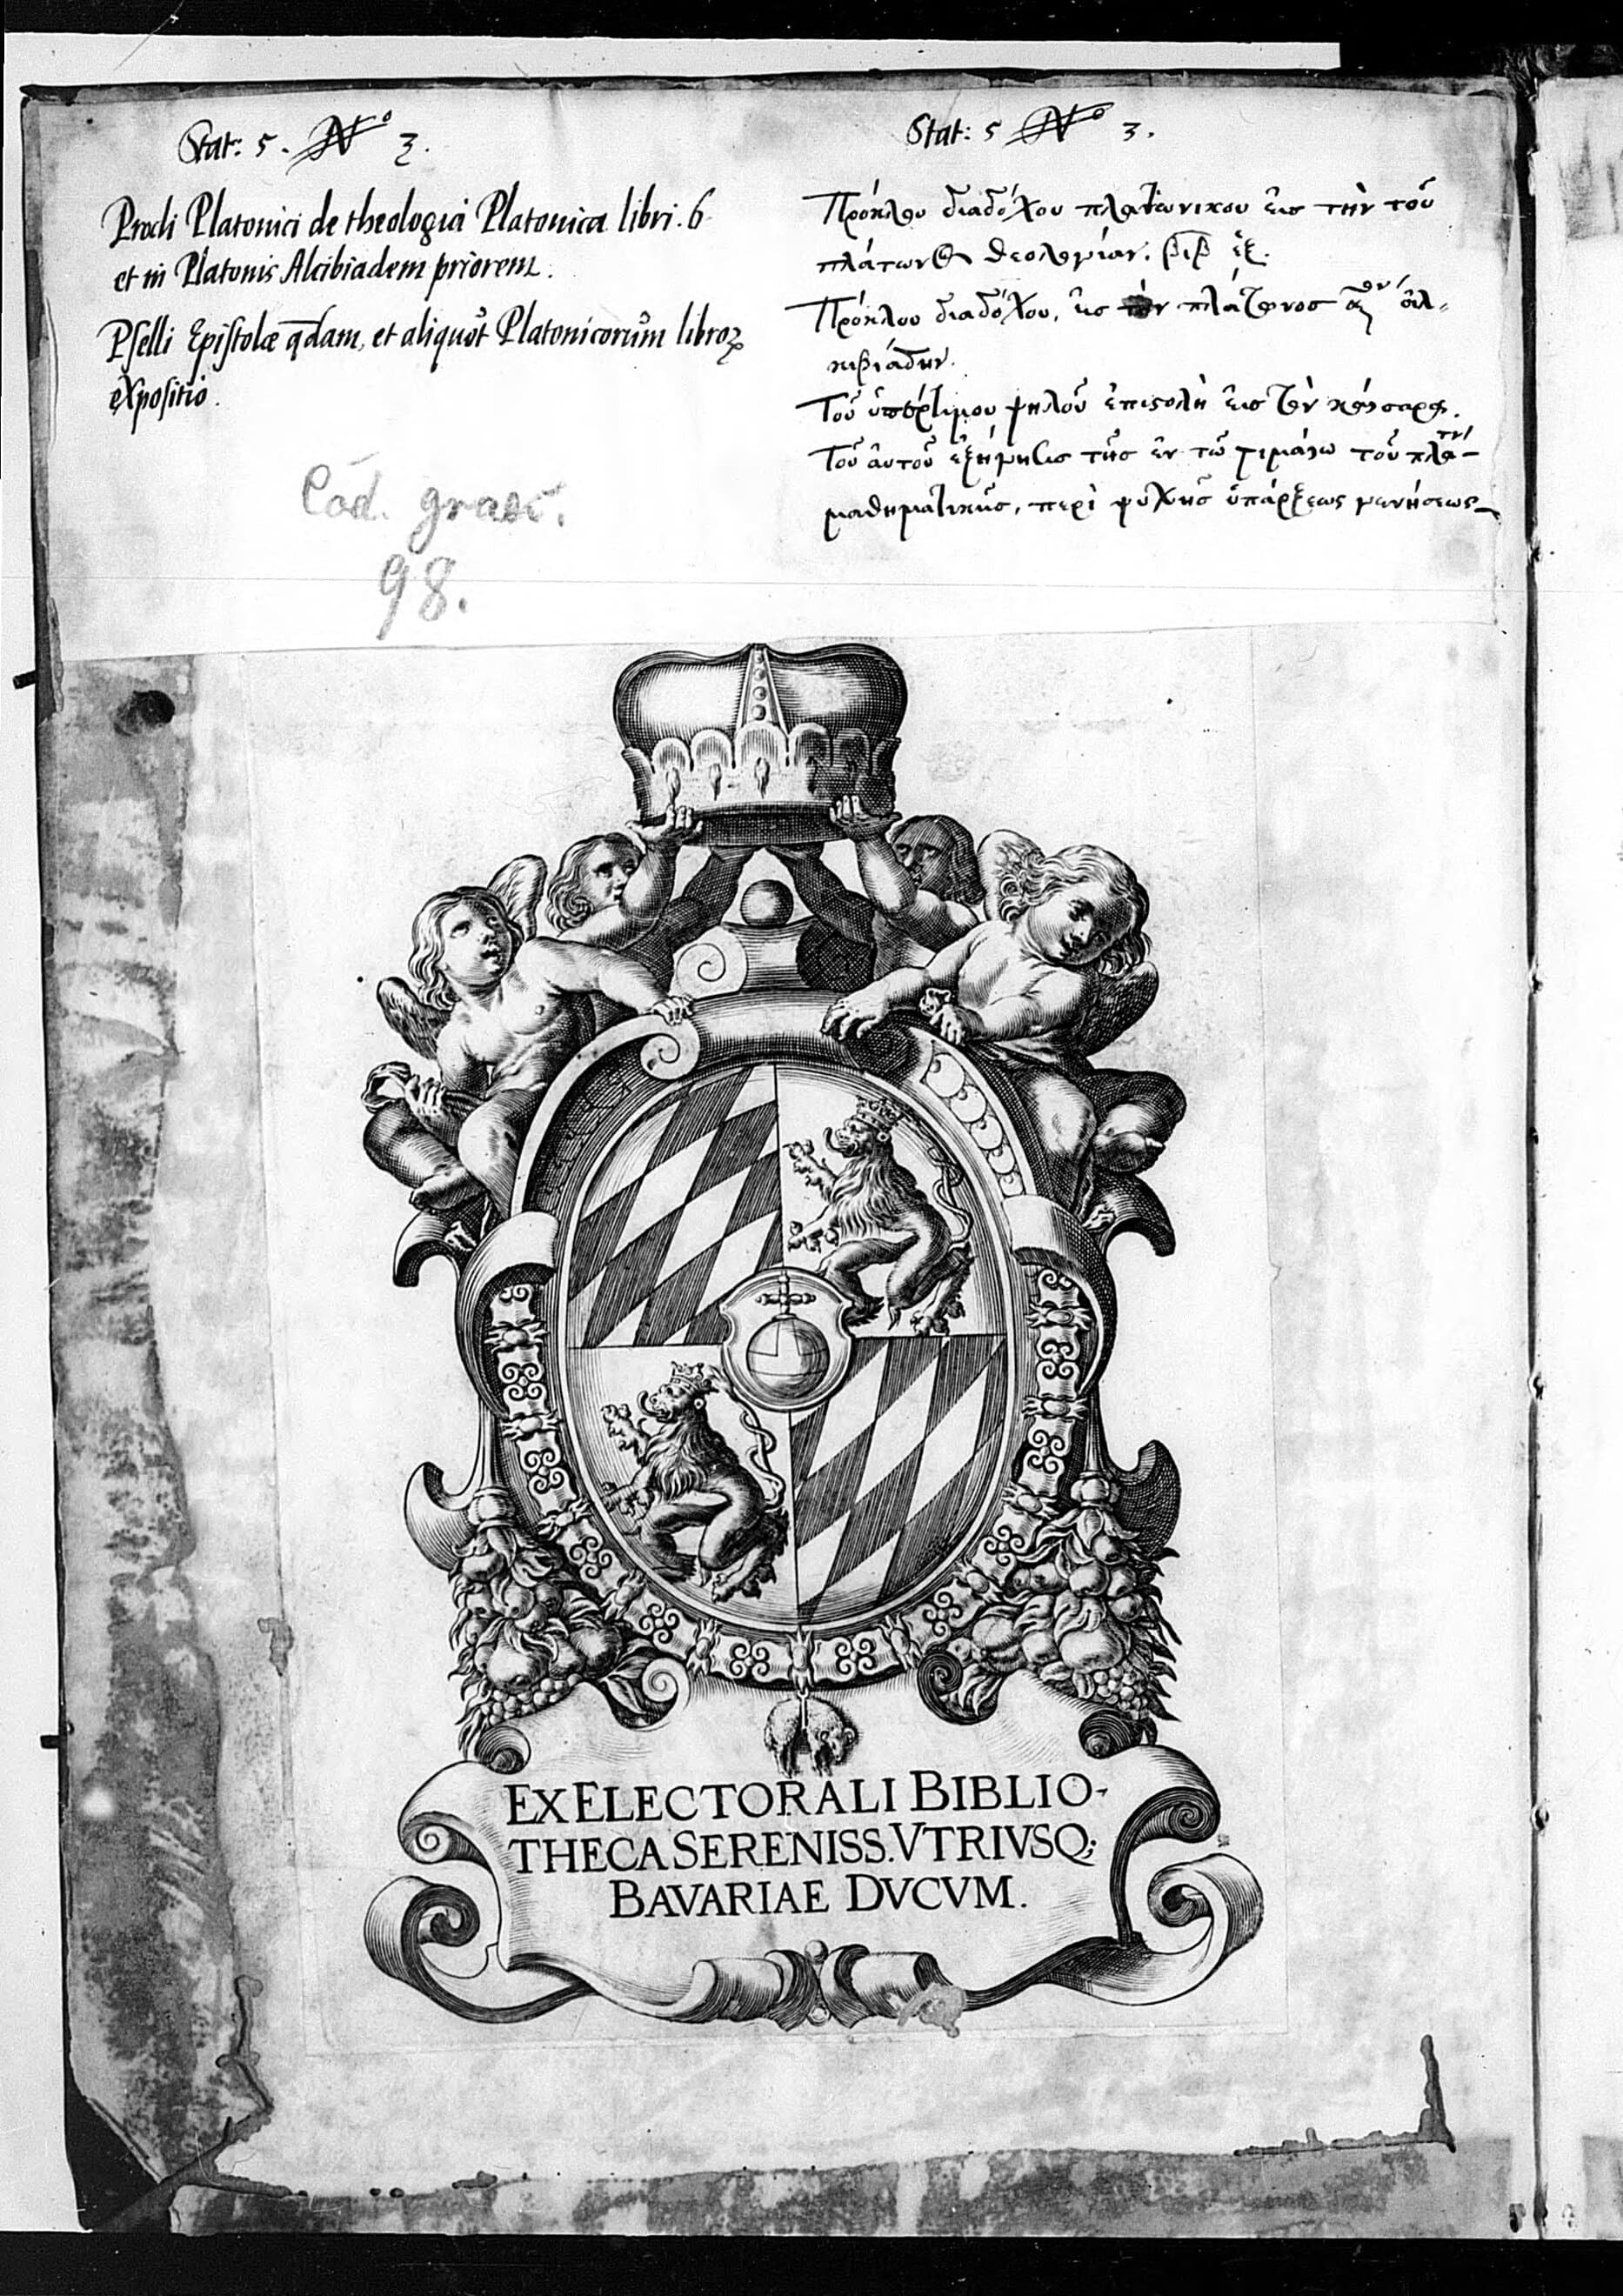 Stat: 5. Nº 3.
Procli Platonici de theologia Platonica libri. 6
et in Platonis Alcibiadem priorem.
Pselli Epistolæ q̄dam, et aliquot Platonicorum libroꝝ
expositio.
Cod. graec.
98.
Stat: 5 Nº 3.
Πρόκλου διαδόχου πλατωνικου εἰσ τὴν τοῦ
πλάτωνος θεολογίαν. βιβ ἕξ.
Πρόκλου διαδόχου, εἰσ τὸν πλάτωνοσ αον ἀλ-
κιβιάδην.
Τοῦ ὑπερτίμου ψελοῦ ἐπιστολὴ εἰσ τὸν καίσαρα.
Τοῦ ἀυτοῦ ἐξήγησισ τῆσ ἐν τῶ τιμαίω τοῦ πλα-
μαθηματικῆς, περὶ ψυχῆσ ὑπάρξεως γενήσεως
EX ELECTORALI BIBLIO-
THECA SERENISS. VTRIVSQ;
BAVARIAE DVCVM.